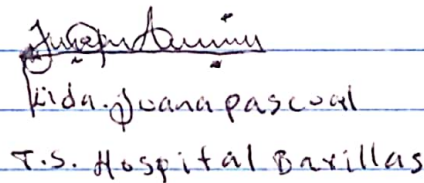 Licda. Juana pascual
T.S. Hospital Barillas